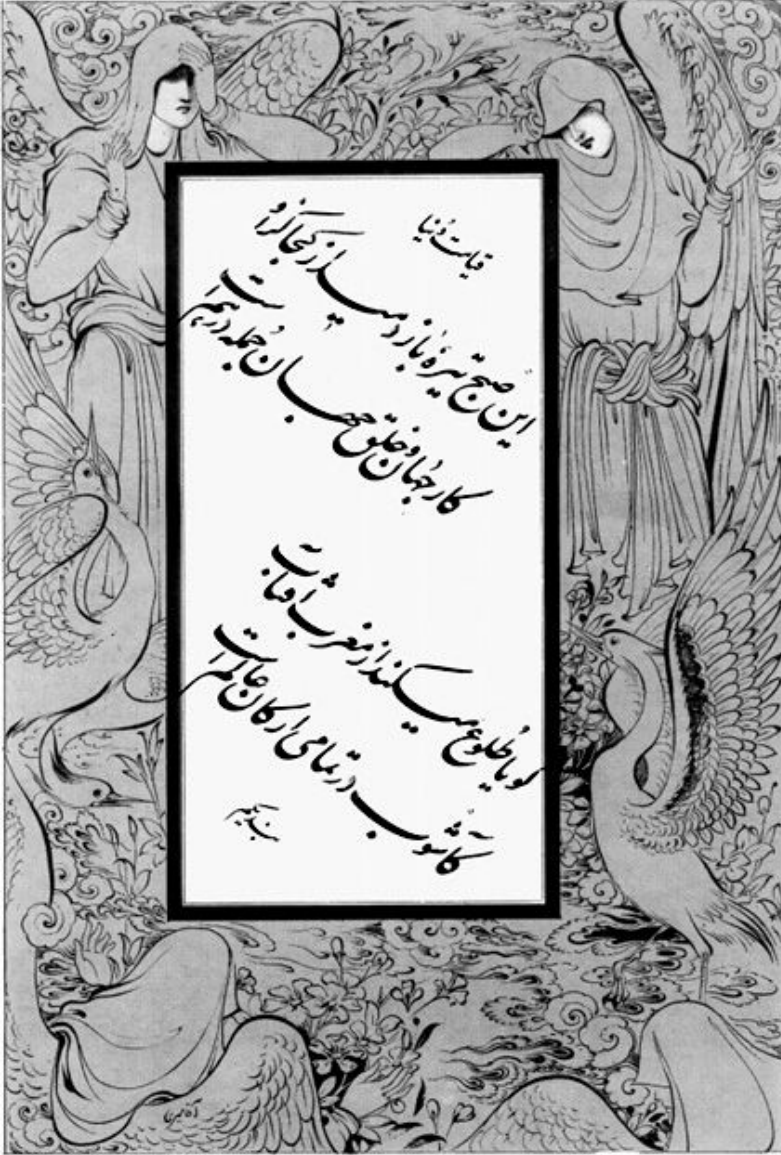 قیامت دُنیا
این صُبح تیره باز دمید از کجا کزاو
کار جهان و خلق جهان جمله درهم است
گویا طلوع میکند از مغرب آفتاب
کآشوب در تمامی ارکان عالم است
بند یکم
آقامیری